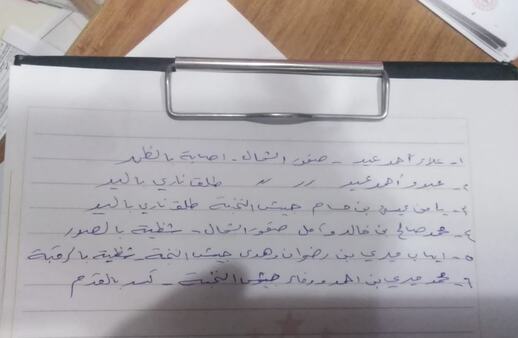 ١- علاء أحمد عيد - صقور الشمال - اصابة بالظهر
٢- عبدو أحمد عيد // // طلق ناري باليد
٣- يامن عيسى بن حسام جيش النخبة طلق ناري باليد
٤- محمد صالح بن خالد وأمل صقور الشمال - شظية بالصدر
٥- ايهاب بن رضوان وهدى جيش النخبة - شظية بالرقبة
٦- محمد بن احمد جيش النخبة - كسر بالقدم